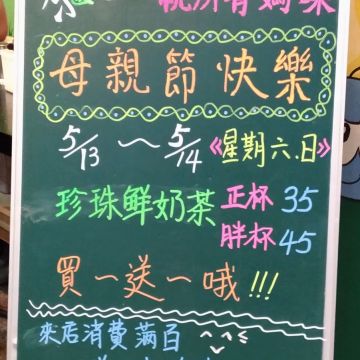 祝所有媽咪
母親節快樂
5/13～5/14《星期六.日》
珍珠鮮奶茶 正杯 35
胖杯 45
買一送一哦!!!
來店消費滿百